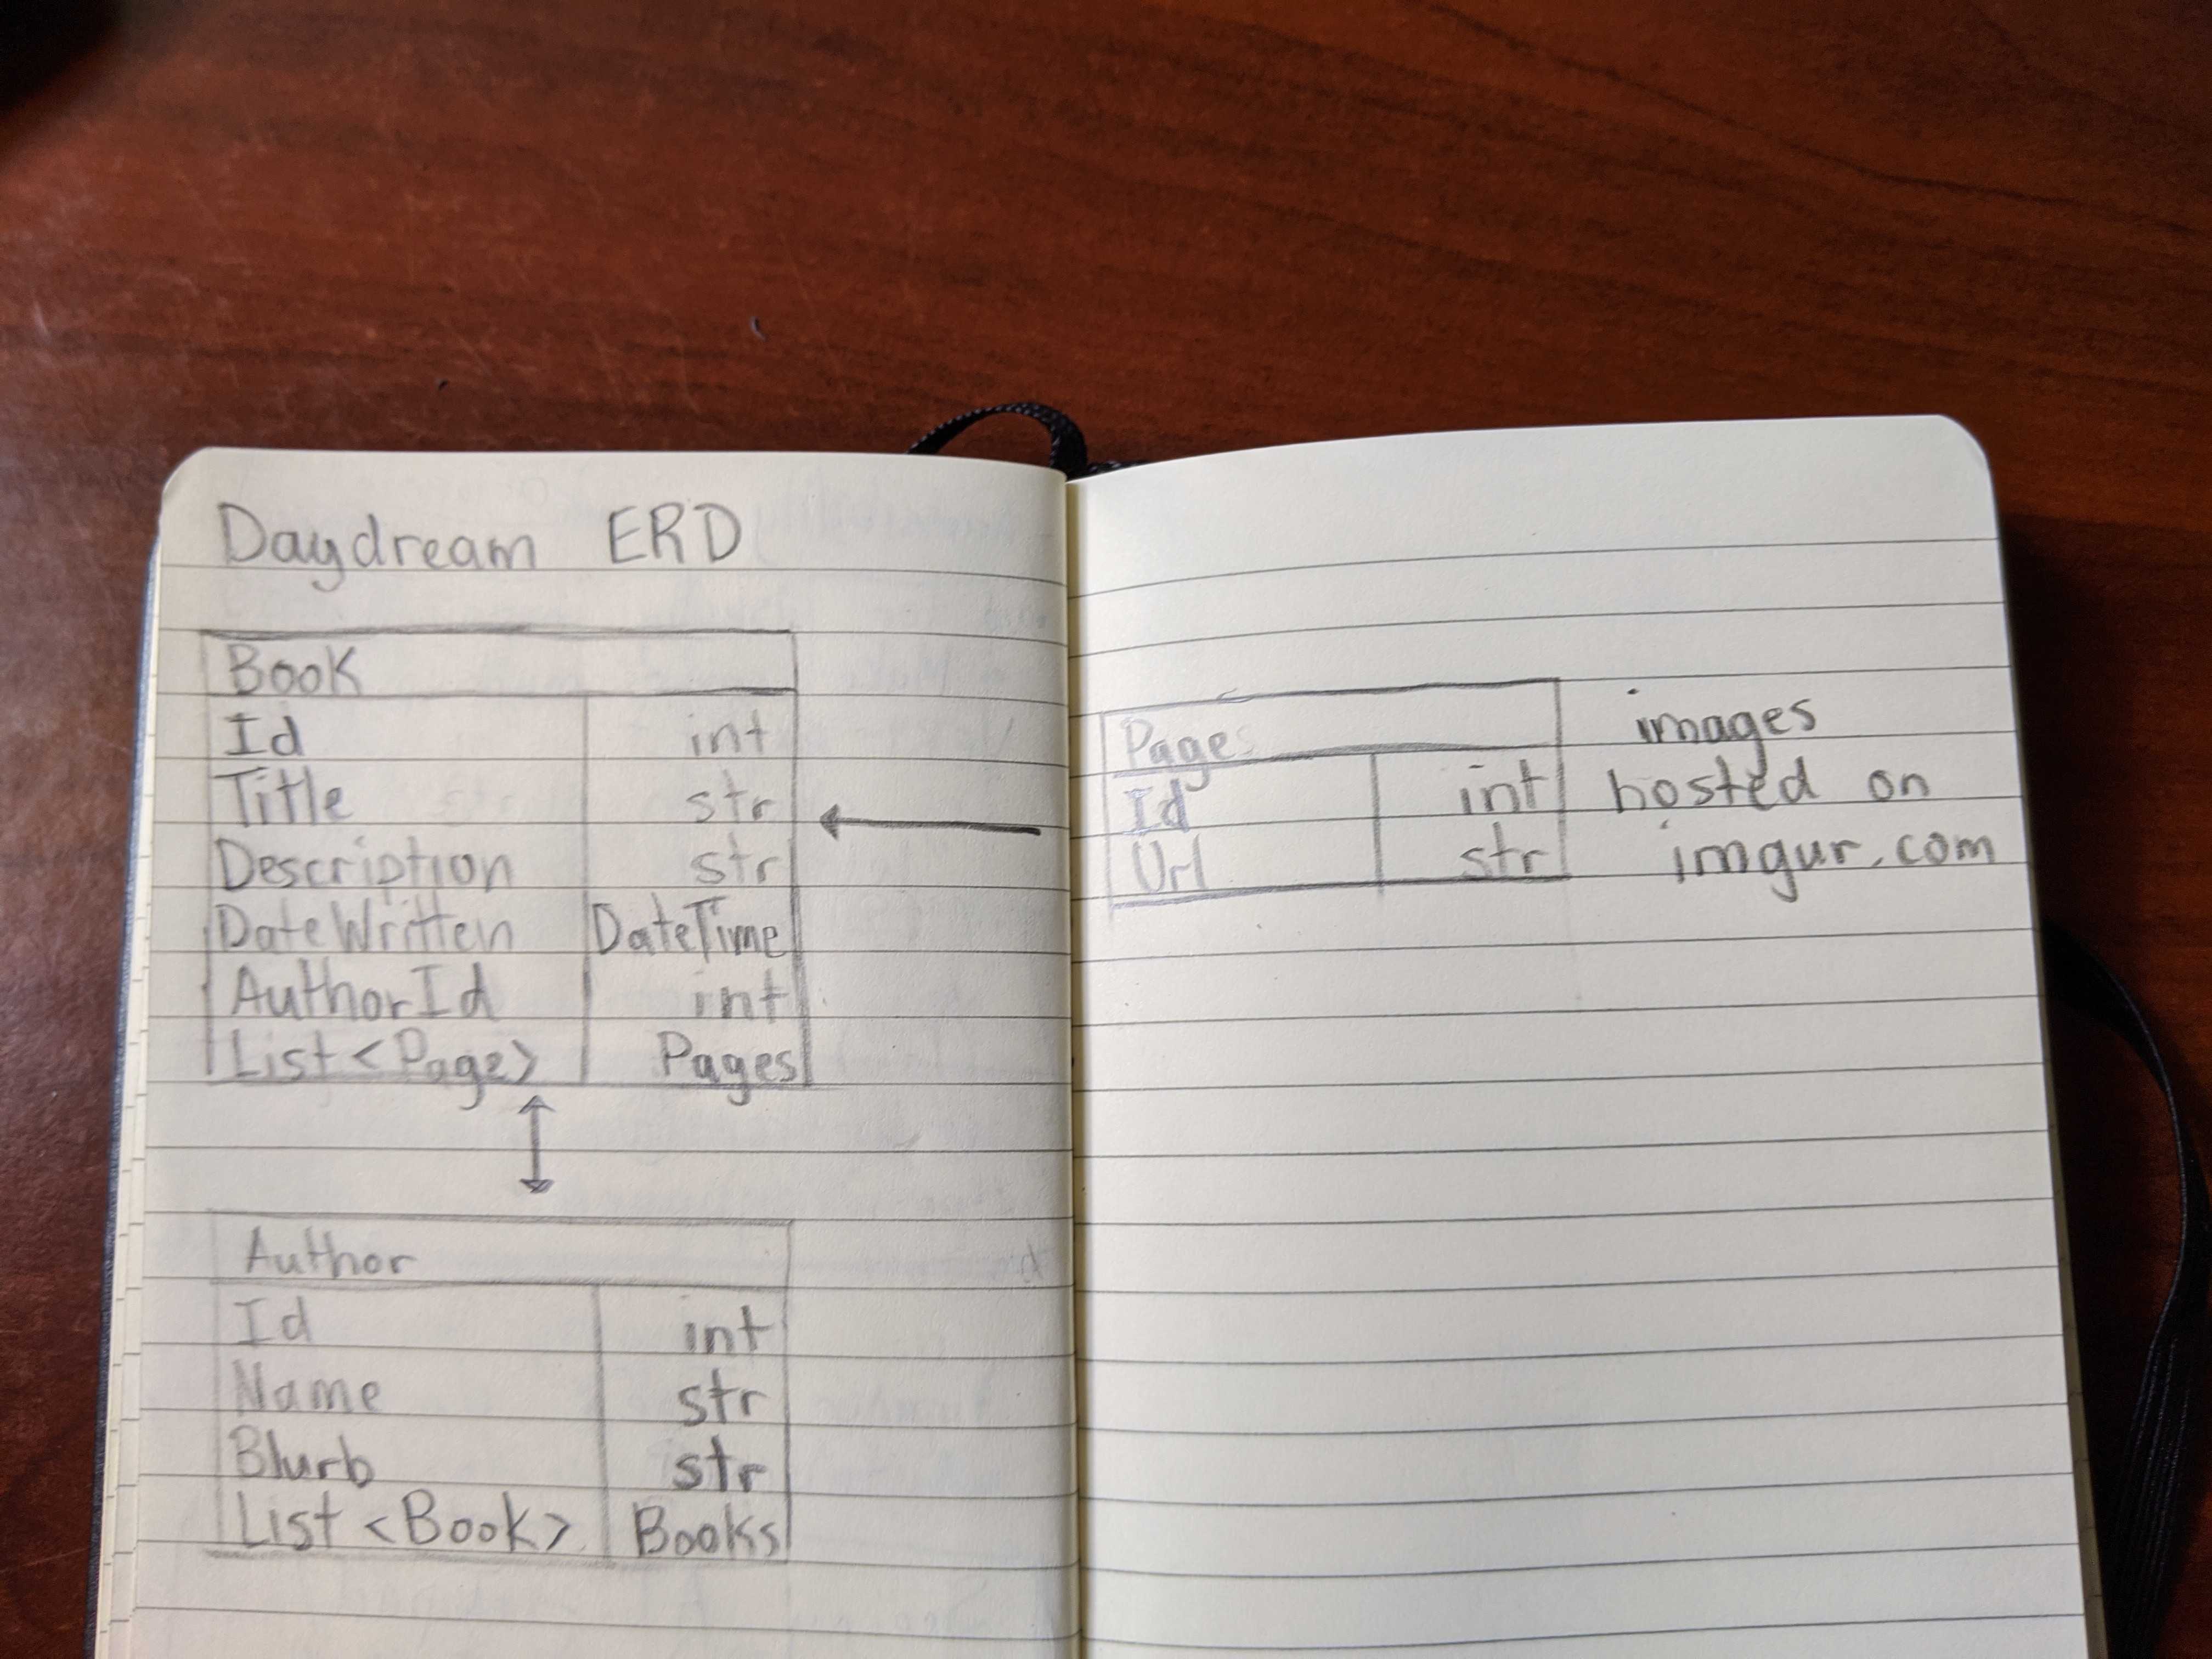 Daydream ERD
Book
Id int
Title str
Description str
DateWritten DateTime
AuthorId int
List <Page> Pages
Author
Id int
Name str
Blurb str
List <Book> Books
Page
Id int
Url str
images
hosted on
imgur.com